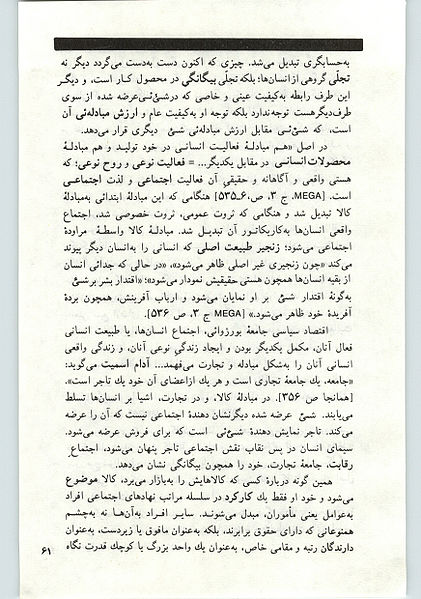 به‌حسابگری تبدیل می‌شد. چیزی که اکنون دست به‌دست می‌گردد دیگر نه
تجلّی گروهی از انسان‌ها؛ بلکه تجلّی بیگانگی در محصول کار است، و دیگر
این طرف رابطه به‌کیفیت عینی و خاصی که درشیٔ‌ئی‌عرضه شده از سوی
طرف‌دیگرهست توجه‌ندارد بلکه توجه او به‌کیفیت عام و ارزش مبادله‌ئی آن
است، که شیٔ‌ئی مقابل ارزش مبادله‌ئی شیٔ دیگری قرار می‌دهد.
در اصل «هم مبادلهٔ فعالیت انسانی در خود تولید و هم مبادلهٔ
محصولات انسانی در مقابل یکدیگر... = فعالیت نوعی و روح نوعی؛ که
هستی واقعی و آگاهانه و حقیقی آن فعالیت اجتماعی و لذت اجتماعی
است. [MEGA، ج ۳، ص،۶ـ۵۳۵] هنگامی که این مبادلهٔ ابتدائی به‌مبادلهٔ
کالا تبدیل شد و هنگامی که ثروت عمومی، ثروت خصوصی شد، اجتماع
واقعی انسان‌ها به‌کاریکاتور آن تبدیل شد. مبادلهٔ کالا واسطهٔ مراودهٔ
اجتماعی می‌شود؛ زنجیر طبیعت اصلی که انسانی را به‌انسان دیگر پیوند
می‌کند «چون زنجیری غیر اصلی ظاهر می‌شود»، «در حالی که جدائی انسان
از بقیه انسان‌ها همچون هستی حقیقیش نمودار می‌شود»؛ «اقتدار بشر بر شیٔ
به‌گونهٔ اقتدار شیٔ بر او نمایان می‌شود و ارباب آفرینش، همچون بردهٔ
آفریدهٔ خود ظاهر می‌شود.» [MEGA ج ۳، ص ۵۳۶].
اقتصاد سیاسی جامعهٔ بورژوائی، اجتماع انسان‌ها، یا طبیعت انسانی
فعال آنان، مکمل یکدیگر بودن و ایجاد زندگی نوعی آنان، و زندگی واقعی
انسانی آنان را به‌شکل مبادله و تجارت می‌فهمد... آدام اسمیت می‌گوید:
«جامعه، یك جامعهٔ تجاری است و هر یك ازاعضای آن خود یك تاجر است».
[همانجا ص ۳۵۶]. در مبادلهٔ کالا، و در تجارت، اشیا بر انسان‌ها تسلط
می‌یابند. شیٔ عرضه شده دیگرنشان دهندهٔ اجتماعی نیست که آن را عرضه
می‌کند. تاجر نمایش دهندهٔ شیٔ‌ئی است که برای فروش عرضه می‌شود.
سیمای انسان در پس نقاب نقش اجتماعی تاجر پنهان می‌شود، اجتماع
رقابت، جامعهٔ تجارت، خود را همچون بیگانگی نشان می‌دهد.
همین گونه دربارهٔ کسی که کالاهایش را به‌بازار می‌برد، کالا موضوع
می‌شود و خود او فقط یك کارکرد در سلسله مراتب نهادهای اجتماعی افراد
به‌عوامل یعنی مأموران، مبدل می‌شوند. سایر افراد به‌آن‌ها نه به‌چشم
همنوعانی که دارای حقوق برابرند، بلکه به‌عنوان مافوق یا زیردست، به‌عنوان
دارندگان رتبه و مقامی خاص، به‌عنوان یك واحد بزرگ یا کوچك قدرت نگاه
۶۱